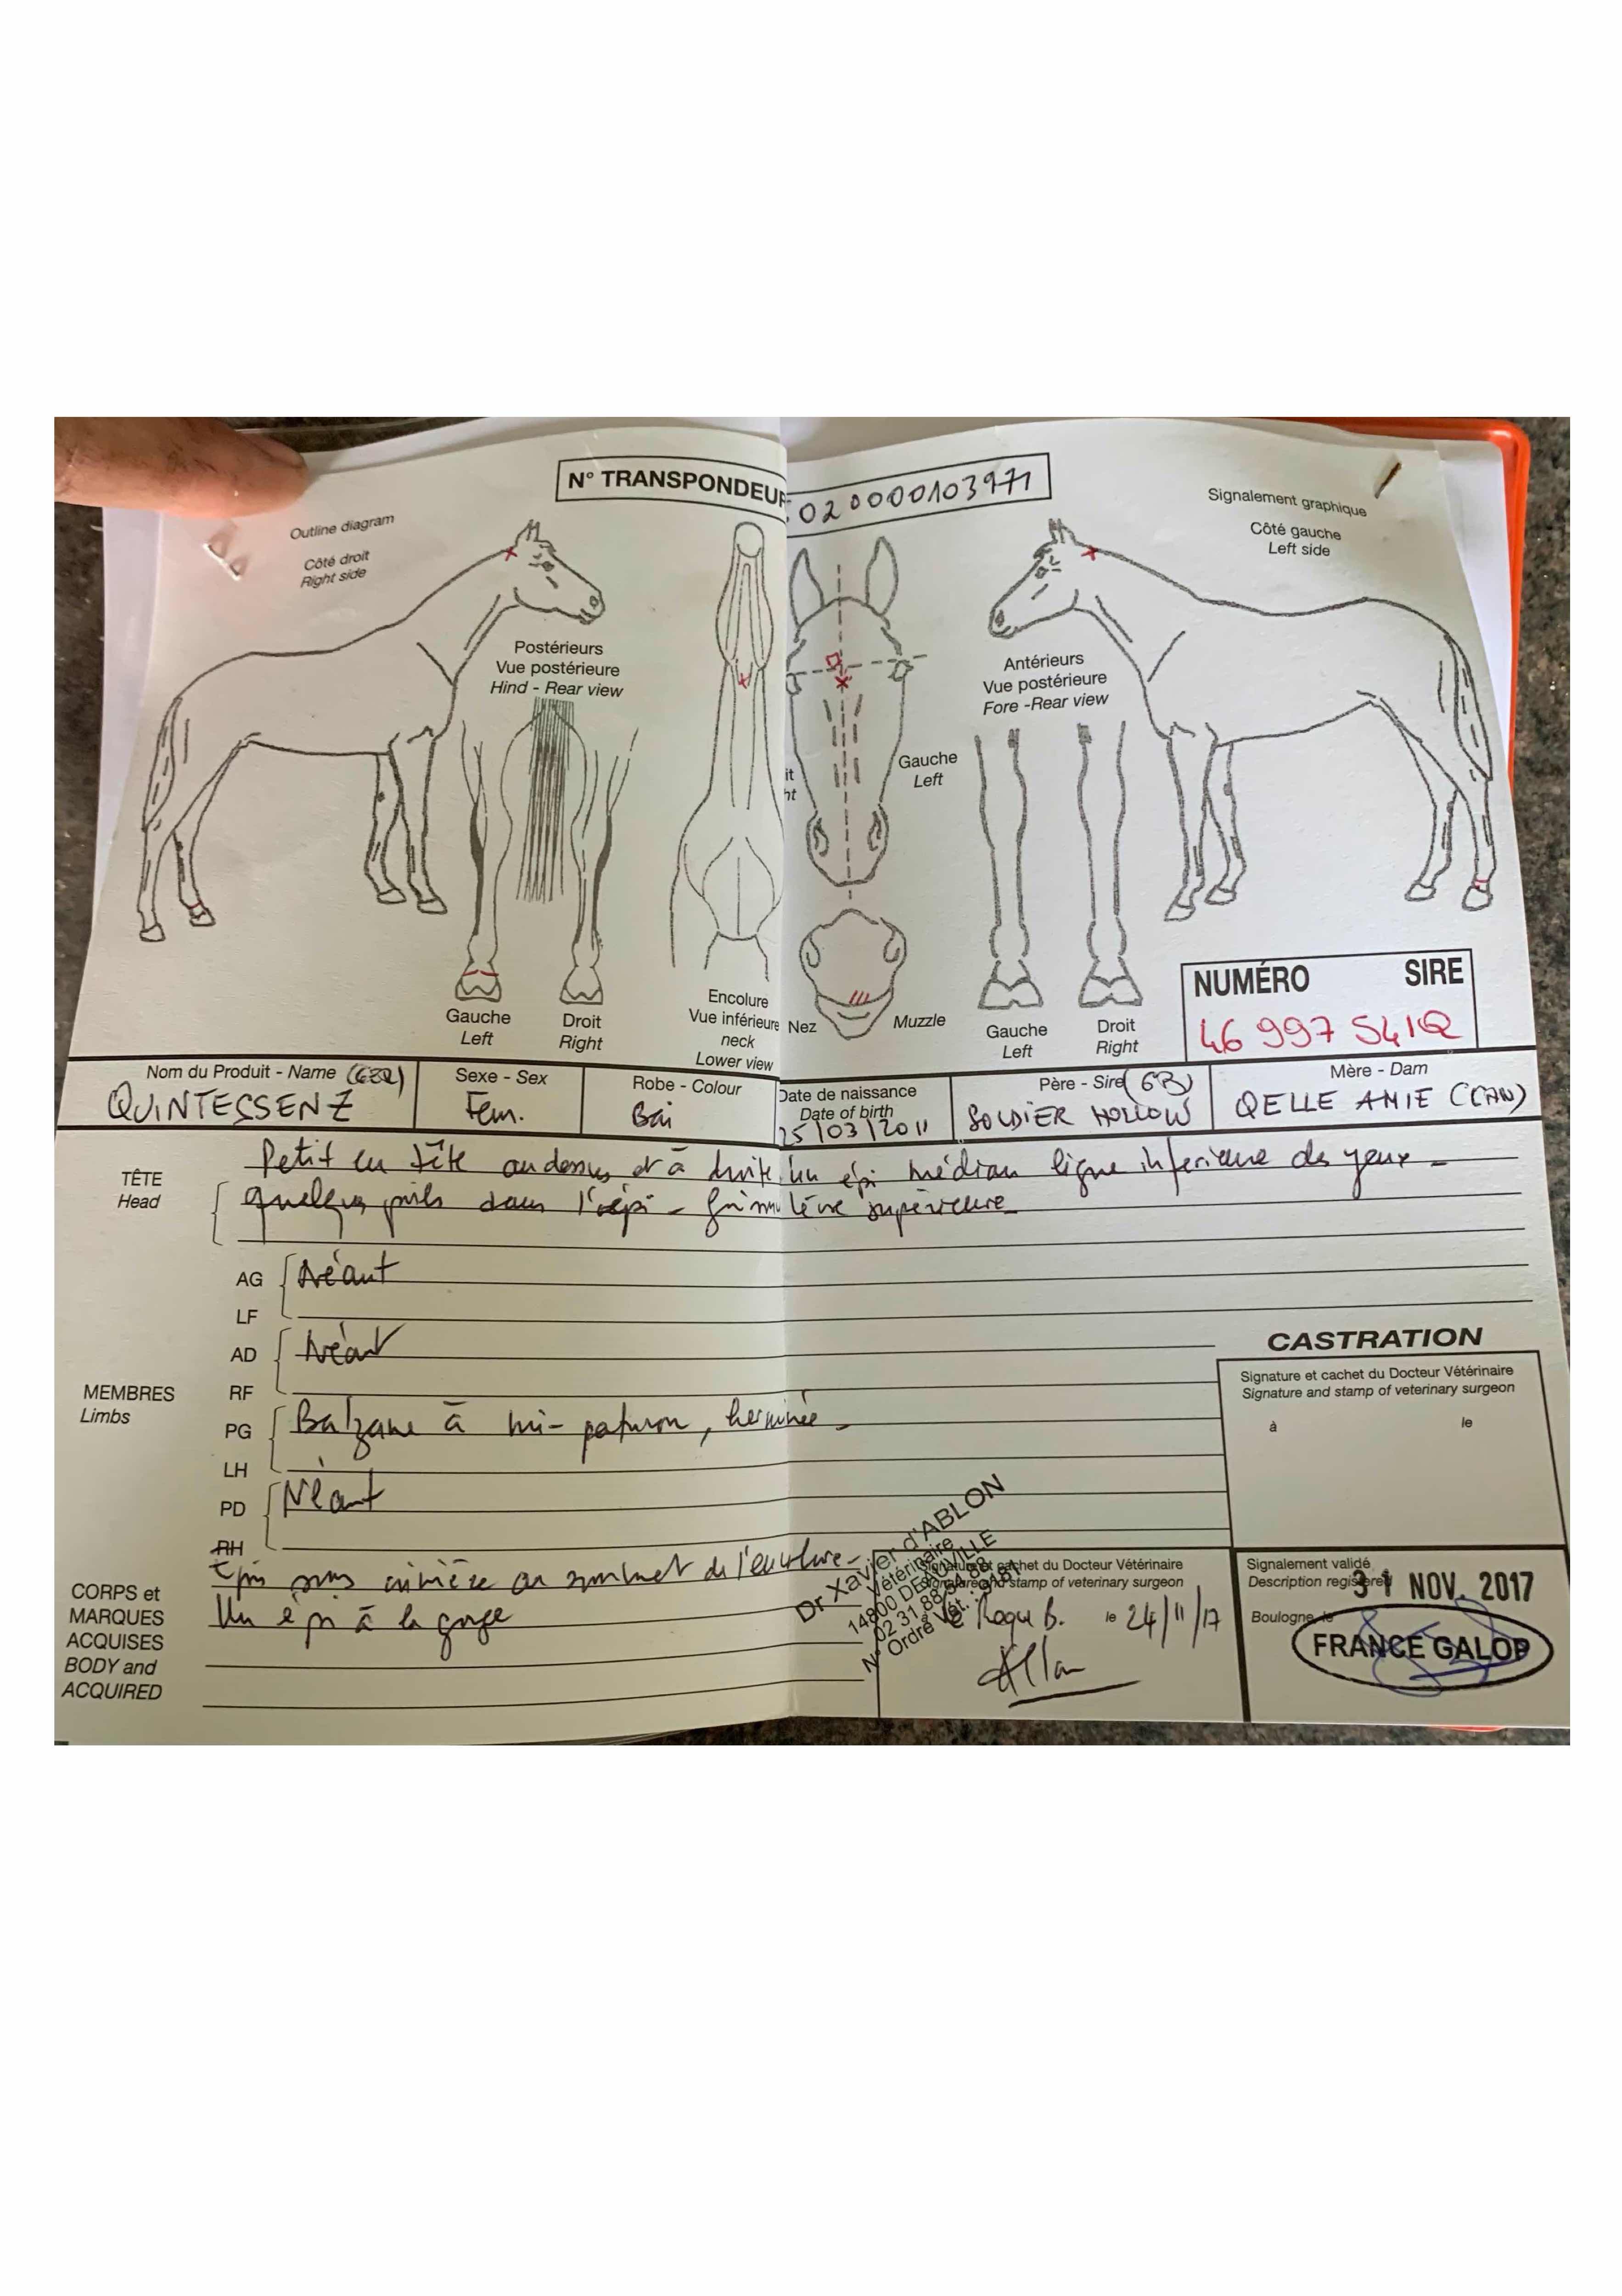 N° TRANSPONDEUR
020000103971
Outline diagram
Côté droit
Right side
Signalement graphique
Côté gauche
Left side
Postérieurs
Vue postérieure
Hind - Rear view
Antérieurs
Vue postérieure
Fore -Rear view
Gauche
Left
Gauche
Left
Droit
Right
Encolure
Vue inférieure
neck
Lower view
Nez
Muzzle
Gauche
Left
Droit
Right
NUMÉRO SIRE
46 997 541Q
Nom du Produit - Name (GER)
QUINTESSENZ
Sexe - Sex
Fem.
Robe - Colour
Bai
Date de naissance
Date of birth
25/03/2011
Père - Sire (GB)
SOLDIER HOLLOW
Mère - Dam
QELLE AMIE (CAN)
TÊTE
Head
Petit en tête au dessus et à droite un épi médian ligne inferieure des yeux -
quelques poils dans l'épi - lèvre supérieure
MEMBRES
Limbs
AG
LF
Néant
AD
RF
Néant
PG
LH
Balzane à mi-paturon, herminée -
PD
RH
Néant
CORPS et
MARQUES
ACQUISES
BODY and
ACQUIRED
Epi sous crinière au sommet de l'encolure -
Un épi à la gorge
CASTRATION
Signature et cachet du Docteur Vétérinaire
Signature and stamp of veterinary surgeon
à le
Dr Xavier d'ABLON
Vétérinaire
14800 DEAUVILLE
02 31 88
N° Ordre Vét.:
Signature et cachet du Docteur Vétérinaire
Signature and stamp of veterinary surgeon
Roque B. le 24/11/17
Signalement validé
Description registered
31 NOV. 2017
Boulogne, le
FRANCE GALOP